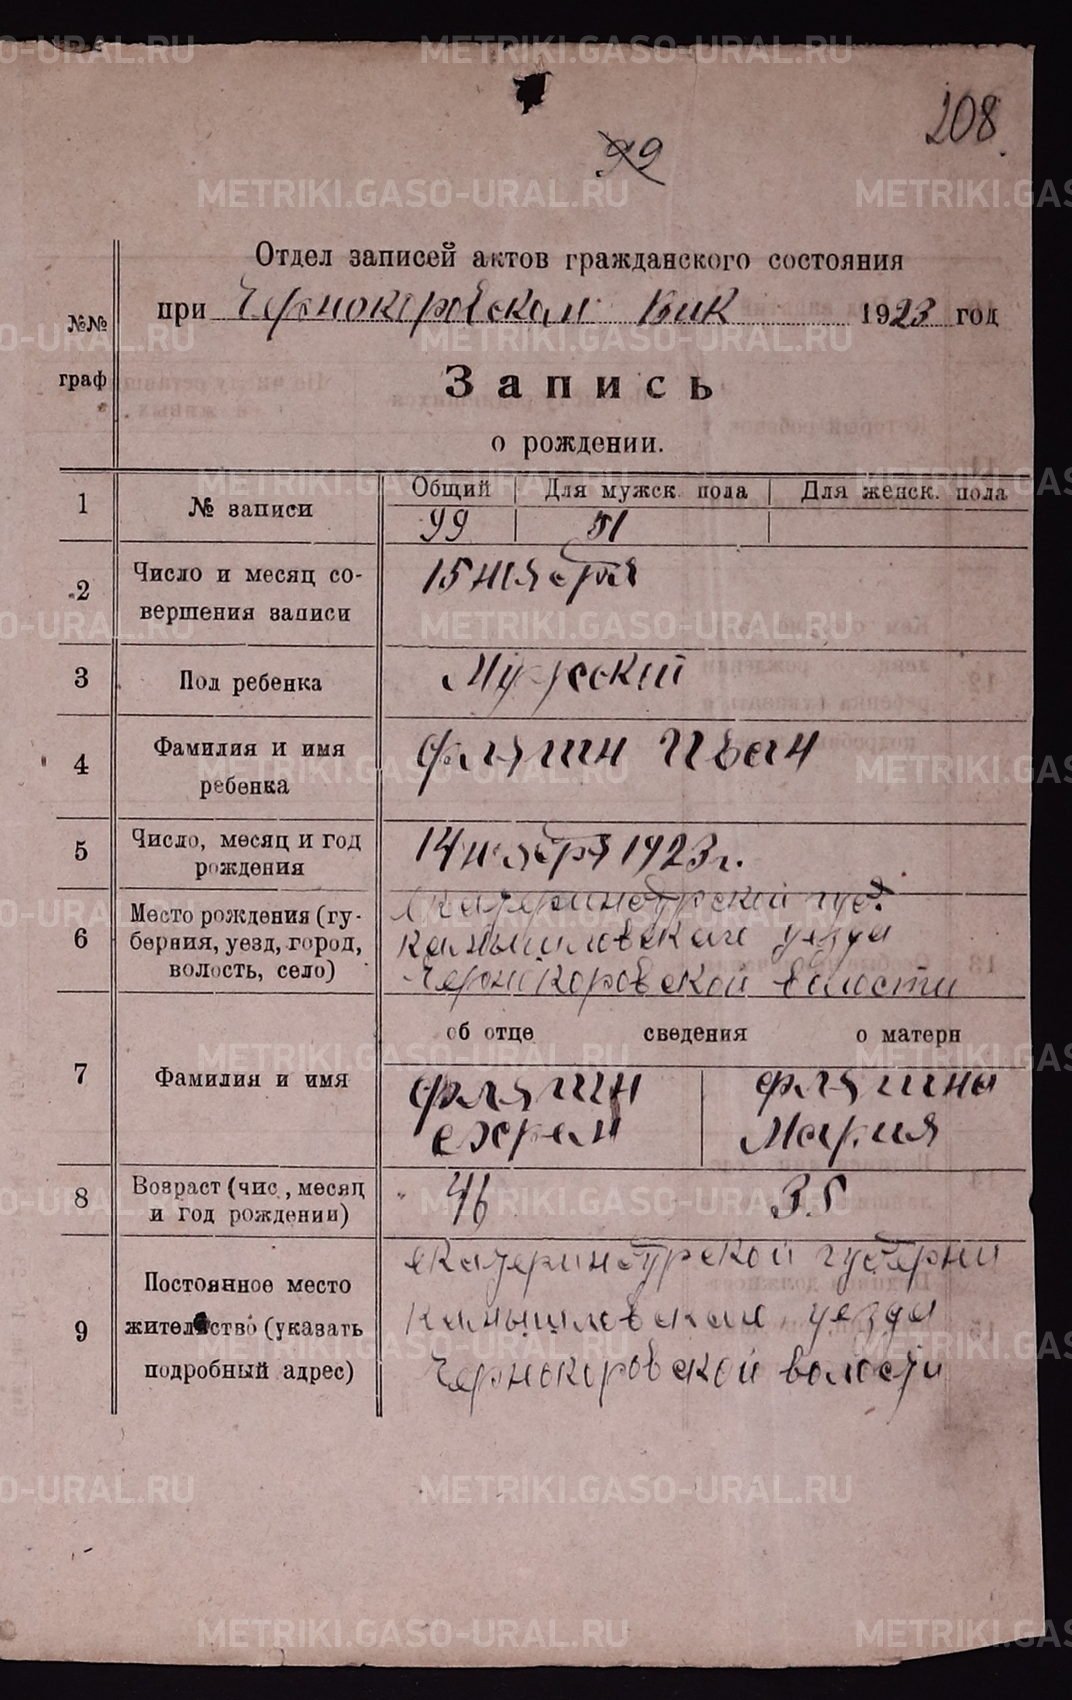 208
99
Отдел записей актов гражданского состояния
при Чернокоровском Вик 1923 год
№№
граф
Запись
о рождении.
1 № записи Общий Для мужск. пола Для женск. пола
99 51
2 Число и месяц со-
вершения записи
15 ноября
3 Пол ребенка Мужской
4 Фамилия и имя
ребенка
Флягин Иван
5 Число, месяц и год
рождения
14 ноября 1923 г.
6 Место рождения (гу-
берния, уезд, город,
волость, село)
Екатеринбургской губ.
Камышловскаго уезда
Чернокоровской волости
об отце сведения о матери
7 Фамилия и имя
Флягин Флягина
Ефрем Мария
8 Возраст (чис., месяц
и год рождении)
46 35
9 Постоянное место
жительство (указать
подробный адрес)
Екатеринбургской губерни
Камышловскаго уезда
Чернокоровской волости
METRIKI.GASO-URAL.RU